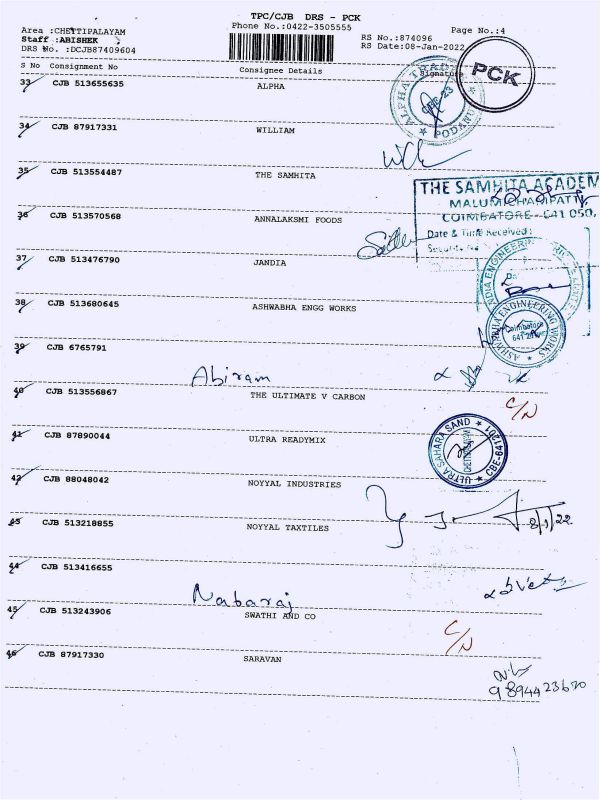 TPC/CJB DRS - PCK
Phone No.:0422-3505555
Page No.:4
Area :CHETTIPALAYAM
Staff :ABISHEK
DRS No. :DCJB87409604
RS No.:874096
RS Date:08-Jan-2022
S No Consignment No Consignee Details Signature
PCK
33 CJB 513655635 ALPHA
34 CJB 87917331 WILLIAM
35 CJB 513554487 THE SAMHITA
THE SAMHITA ACADEM
COIMBATORE - 641 050.
Date & Time Received:
36 CJB 513570568 ANNALAKSMI FOODS
37 CJB 513476790 JANDIA
38 CJB 513680645 ASHWABHA ENGG WORKS
ASHWABHA ENGINEERING WORKS
Coimbatore
39 CJB 6765791 Abiram
40 CJB 513556867 THE ULTIMATE V CARBON C/N
41 CJB 87890044 ULTRA READYMIX
ULTRA SAHARA SAND
CBE-641201
42 CJB 88048042 NOYYAL INDUSTRIES
43 CJB 513218855 NOYYAL TAXTILES 8/1/22
44 CJB 513416655 Nabaraj
45 CJB 513243906 SWATHI AND CO C/N
46 CJB 87917330 SARAVAN